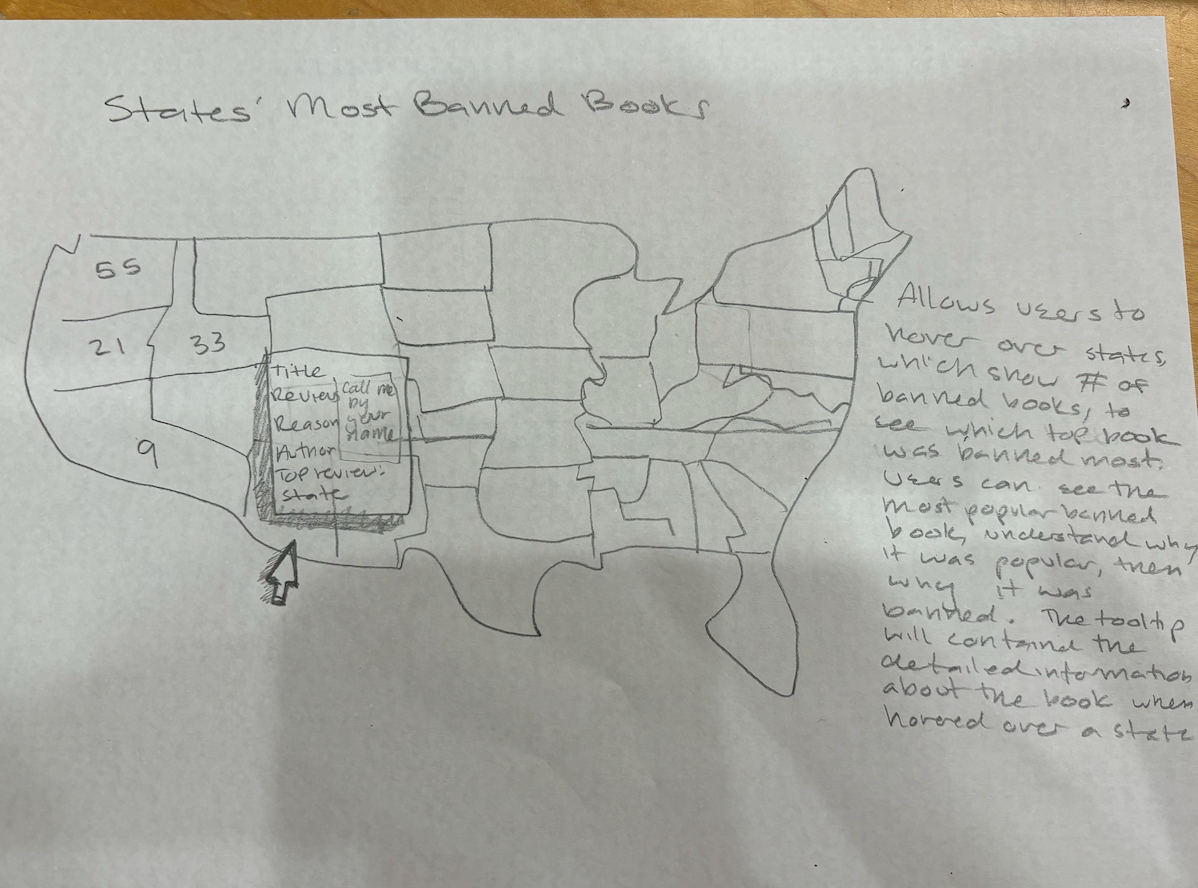 States' Most Banned Books
55
21
33
9
Title
Review
Reason
Author
Top review:
state
Call me
by
your
name
Allows users to
hover over states,
which show # of
banned books, to
see which top book
was banned most.
Users can see the
most popular banned
book, understand why
it was popular, then
why it was
banned. The tooltip
will contained the
detailed information
about the book when
hovered over a state